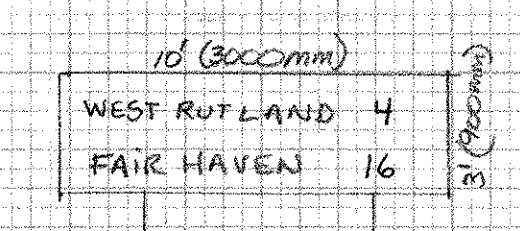 10' (3000mm)
WEST RUTLAND 4
FAIR HAVEN 16
3' (900mm)